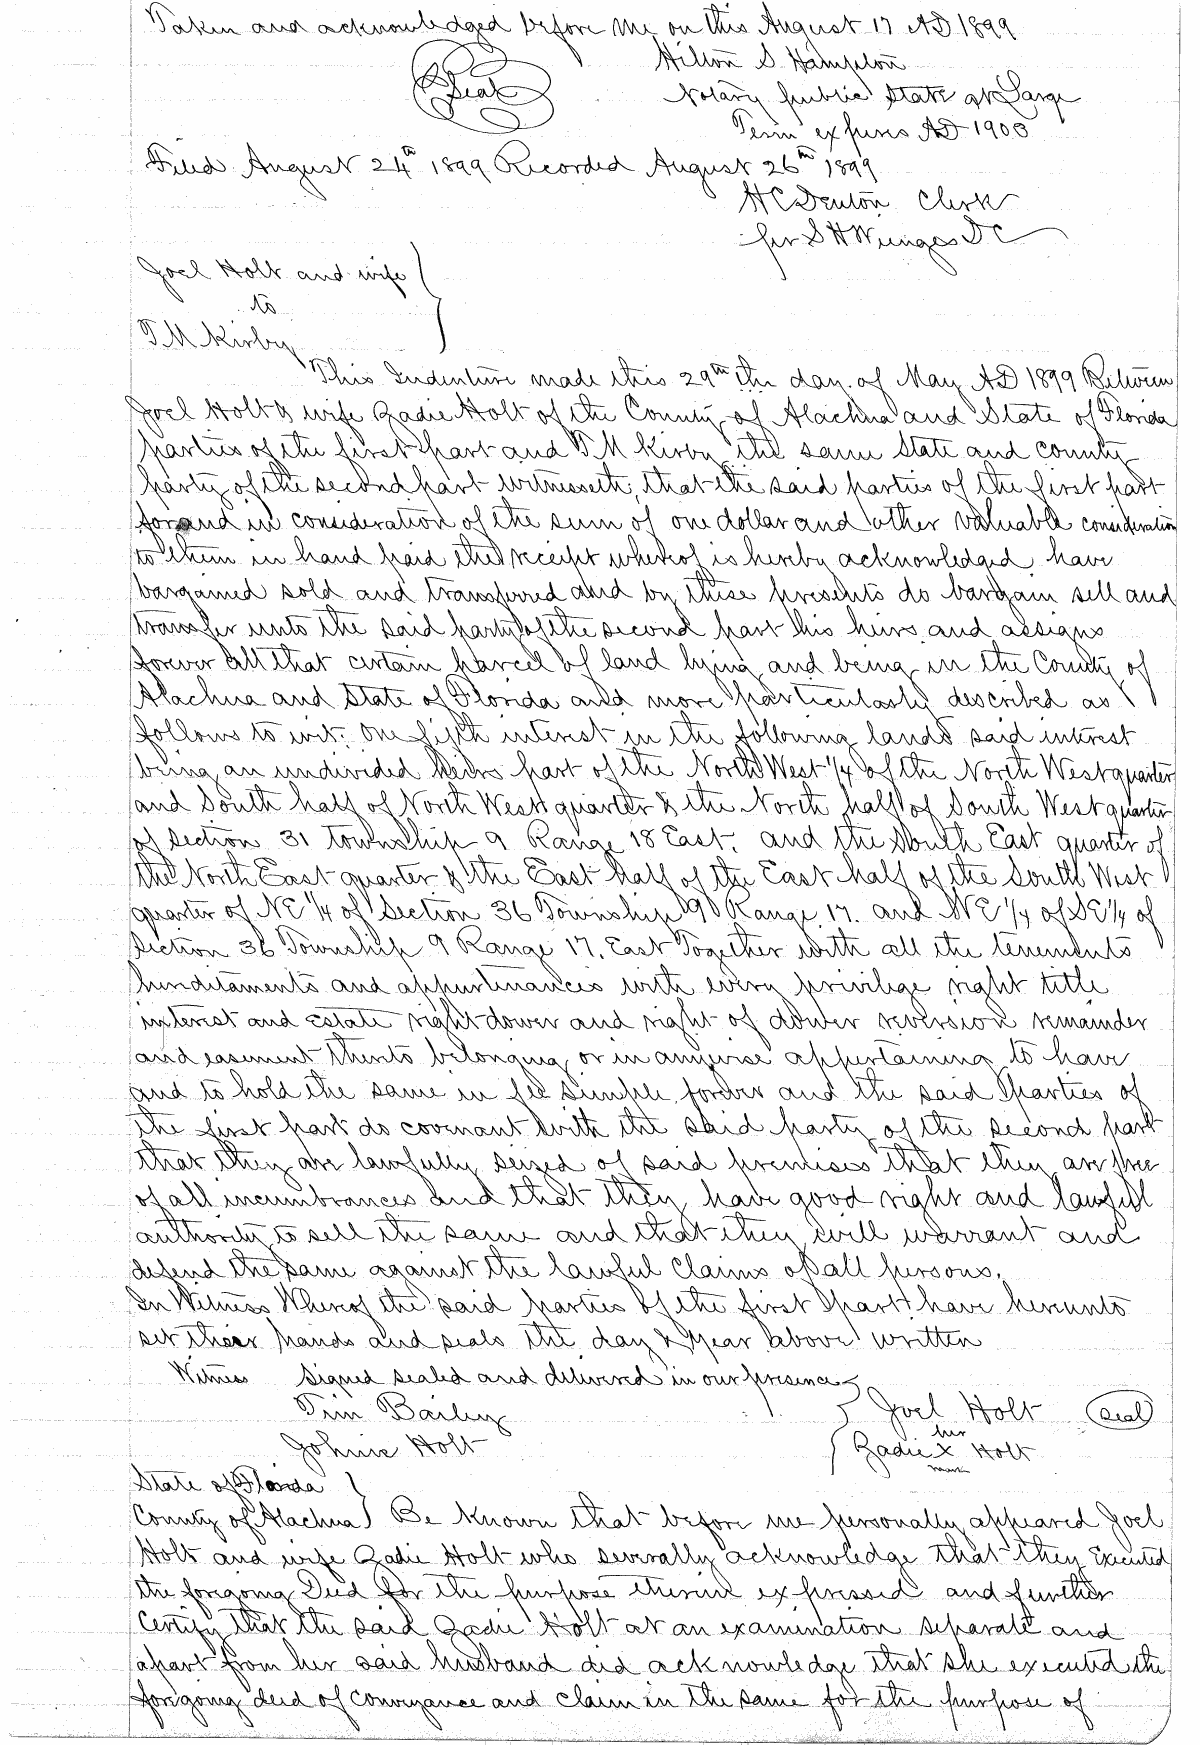 Taken and acknowledged before me on this August 17 AD 1899
Hilton S. Hampton
Seal
Notary public State at Large
Term expires AD 1903
Filed August 24th 1899 Recorded August 26th 1899
H C Denton Clerk
per S H Wienges DC
Joel Holt and wife
to
T M Kirby
This Indenture made this 29th the day of May AD 1899 Between
Joel Holt & wife Zadie Holt of the County of Alachua and State of Florida
parties of the first part and T M Kirby the same State and county
party of the second part witnesseth, that the said parties of the first part
for and in consideration of the sum of one dollar and other valuable consideration
to them in hand paid the receipt whereof is hereby acknowledged have
bargained sold and transferred and by these presents do bargain sell and
transfer unto the said party of the second part his heirs and assigns
forever all that certain parcel of land lying and being in the County of
Alachua and State of Florida and more particularly described as
follows to wit: One fifth interest in the following lands said interest
being an undivided heirs part of the North West 1/4 of the North West quarter
and South half of North West quarter & the North half of South West quarter
of Section 31 township 9 Range 18 East. and the South East quarter of
the North East quarter & the East half of the East half of the South West
quarter of NE 1/4 of Section 36 Township 9 Range 17. and NE 1/4 of SE 1/4 of
Section 36 Township 9 Range 17. East Together with all the tenements
hereditaments and appurtenances with every privilege right title
interest and estate right dower and right of dower reversion remainder
and easement thereto belonging or in anywise appertaining to have
and to hold the same in fee simple forever and the said parties of
the first part do covenant with the said party of the second part
that they are lawfully seized of said premises that they are free
of all incumbrances and that they have good right and lawful
authority to sell the same and that they will warrant and
defend the same against the lawful claims of all persons.
In Witness Whereof the said parties of the first part have hereunto
set their hands and seals the day & year above written
Witness Signed sealed and delivered in our presence
Tim Bailey Joel Holt Seal
her
Johnie Holt Zadie X Holt
mark
State of Florida
County of Alachua Be Known that before me personally appeared Joel
Holt and wife Zadie Holt who severally acknowledge that they Executed
the foregoing Deed for the purpose therein expressed and further
Certify that the said Zadie Holt at an examination separate and
apart from her said husband did acknowledge that she executed the
foregoing deed of conveyance and claim in the same for the purpose of